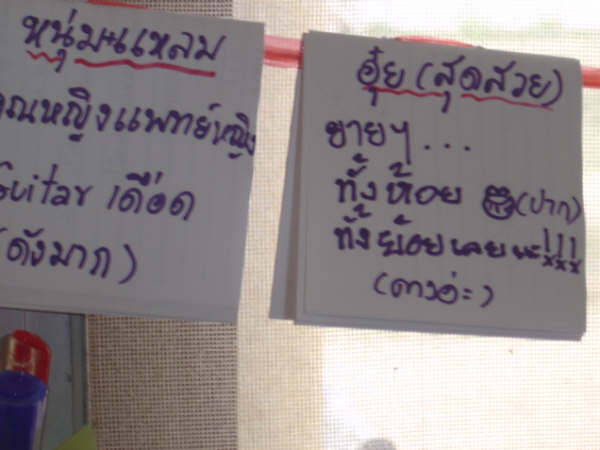 หนุ่มแหลม
คุณหญิงแพทย์หญิง
Guitar เดือด
(ดังมาก)
อุ๋ย (สุดสวย)
ขายๆ...
ทั้งห้อย (ปาก)
ทั้งย้อยเลยนะ!!!